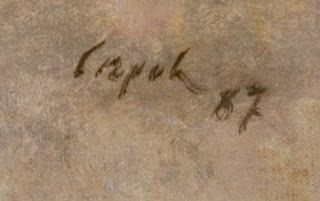 Сѣров 87